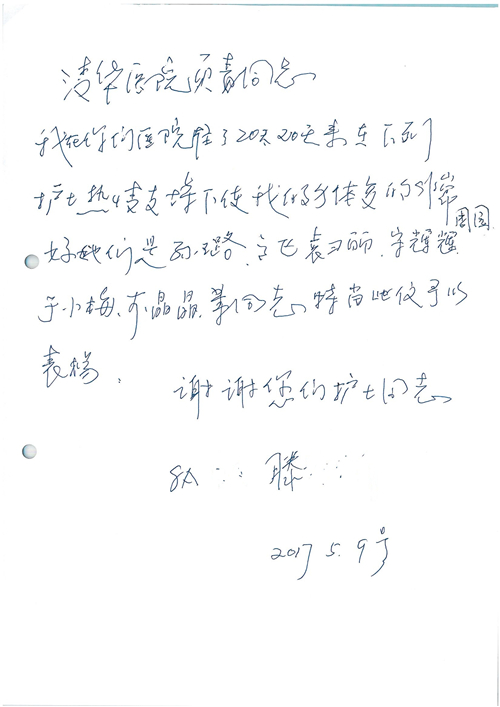 凌华医院负责同志
我在你们医院住了20天20天来在下列
护士热心支持下使我的身体复的非常
周园
好她们是孙璐、方飞袁习丽、宋辉辉
于小梅、亓晶晶、等同志特当此仅予以
表杨、
谢谢您们护士同志
8A 滕
2017 5. 9号